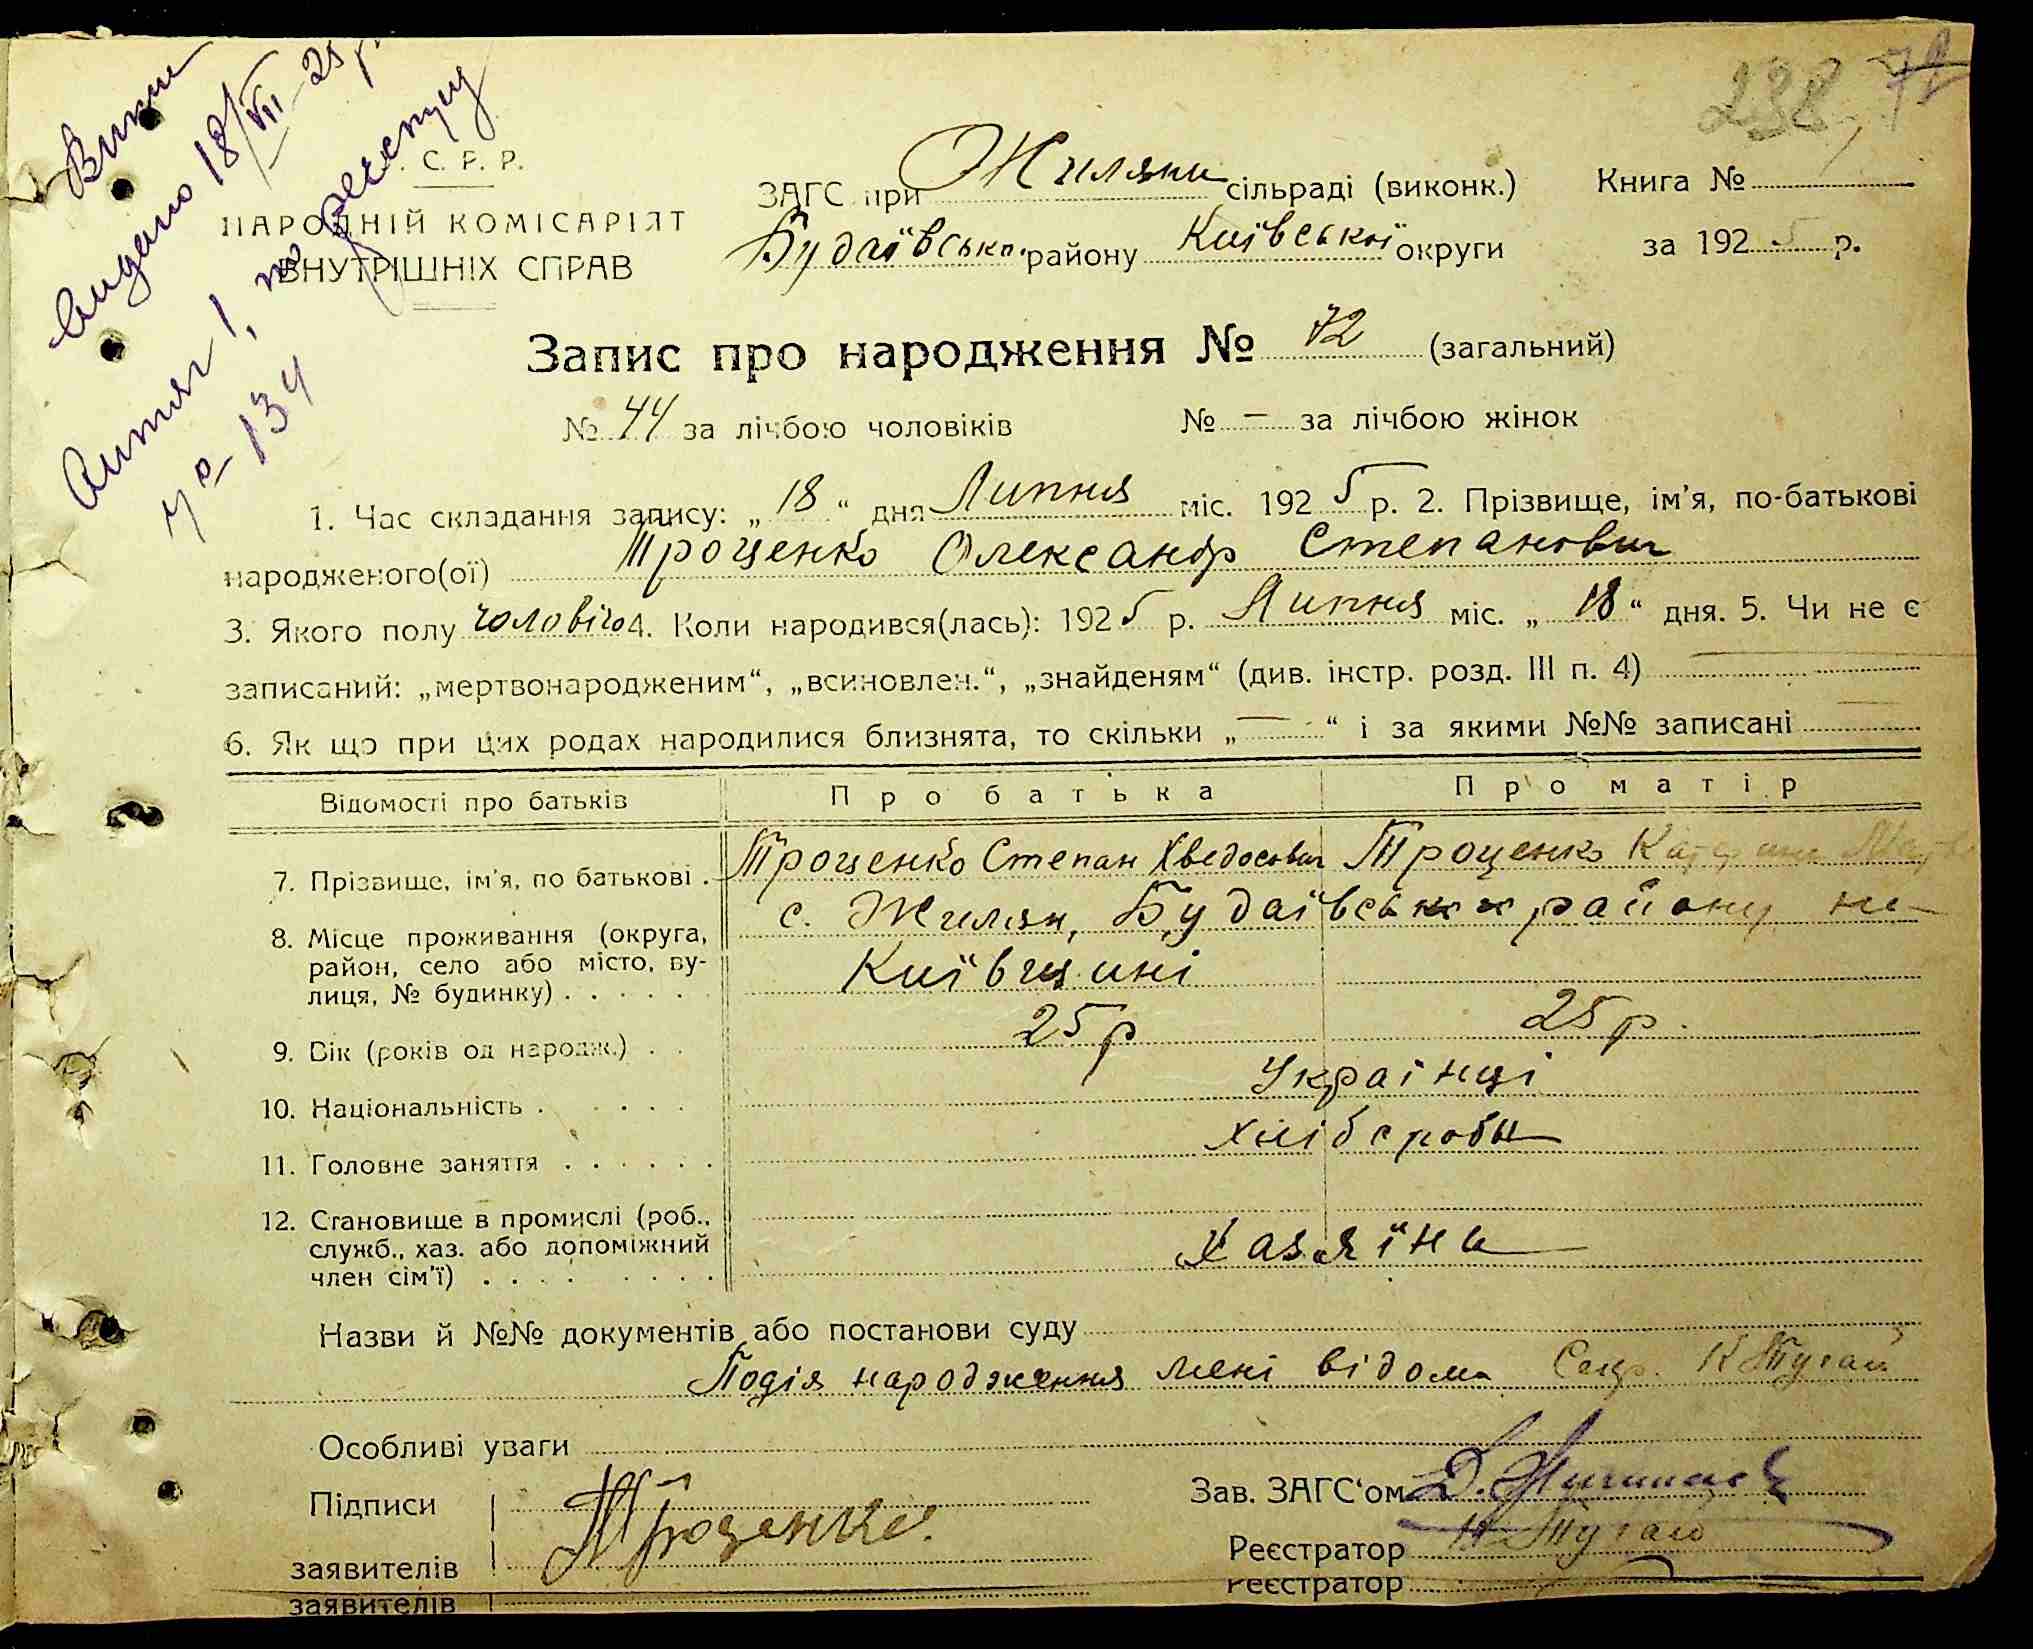 238 72
Видано 18/VII–25 р.
Витяг 1, по реєстру
№ 134
С. Р. Р.
НАРОДНІЙ КОМІСАРІЯТ
ВНУТРІШНІХ СПРАВ
ЗАГС при Жиляни сільраді (виконк.) Книга №
Будаївськ. району Київської округи за 1925 р.
Запис про народження № 72 (загальний)
№ 44 за лічбою чоловіків № — за лічбою жінок
1. Час складання запису: „18“ дня Липня міс. 1925 р. 2. Прізвище, ім'я, по-батькові
народженого(ої) Троценко Олександр Степанович
3. Якого полу чоловічо 4. Коли народився(лась): 1925 р. Липня міс. „18“ дня. 5. Чи не є
записаний: „мертвонародженим“, „всиновлен.“, „знайденям“ (див. інстр. розд. III п. 4) —
6. Як що при цих родах народилися близнята, то скільки „—“ і за якими №№ записані —
Відомості про батьків Про батька Про матір
7. Прізвище, ім'я, по батькові . Троценко Степан Хведосович Троценко Катерина
8. Місце проживання (округа, район, село або місто, вулиця, № будинку) . . . . . . с. Жилян, Будаївського району на
Київщині
9. Вік (років од народж.) . . 25 р 25 р.
10. Національність . . . . . Українці
11. Головне заняття . . . . . . Хліброби
12. Становище в промислі (роб., служб., хаз. або допоміжний член сім'ї) . . . . . . . . Хазяїна
Назви й №№ документів або постанови суду
Подія народження мені відома Секр. К Тугай
Особливі уваги
Підписи Троценко. Зав. ЗАГС'ом Д.
заявителів Реєстратор К Тугай
заявителів реєстратор